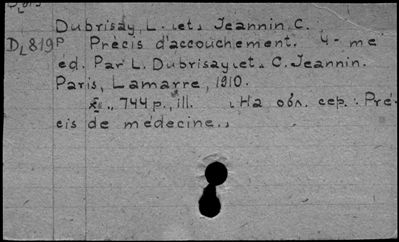 Dubrisay, L. et. Jeannin, C.
DL819p Précis d'accouchement. 4-me
ed. Par L. Dubrisay et. C. Jeannin.
Paris, Lamarre, 1910.
744 p., ill. На обл. сер.: Pré-
cis de médecine.